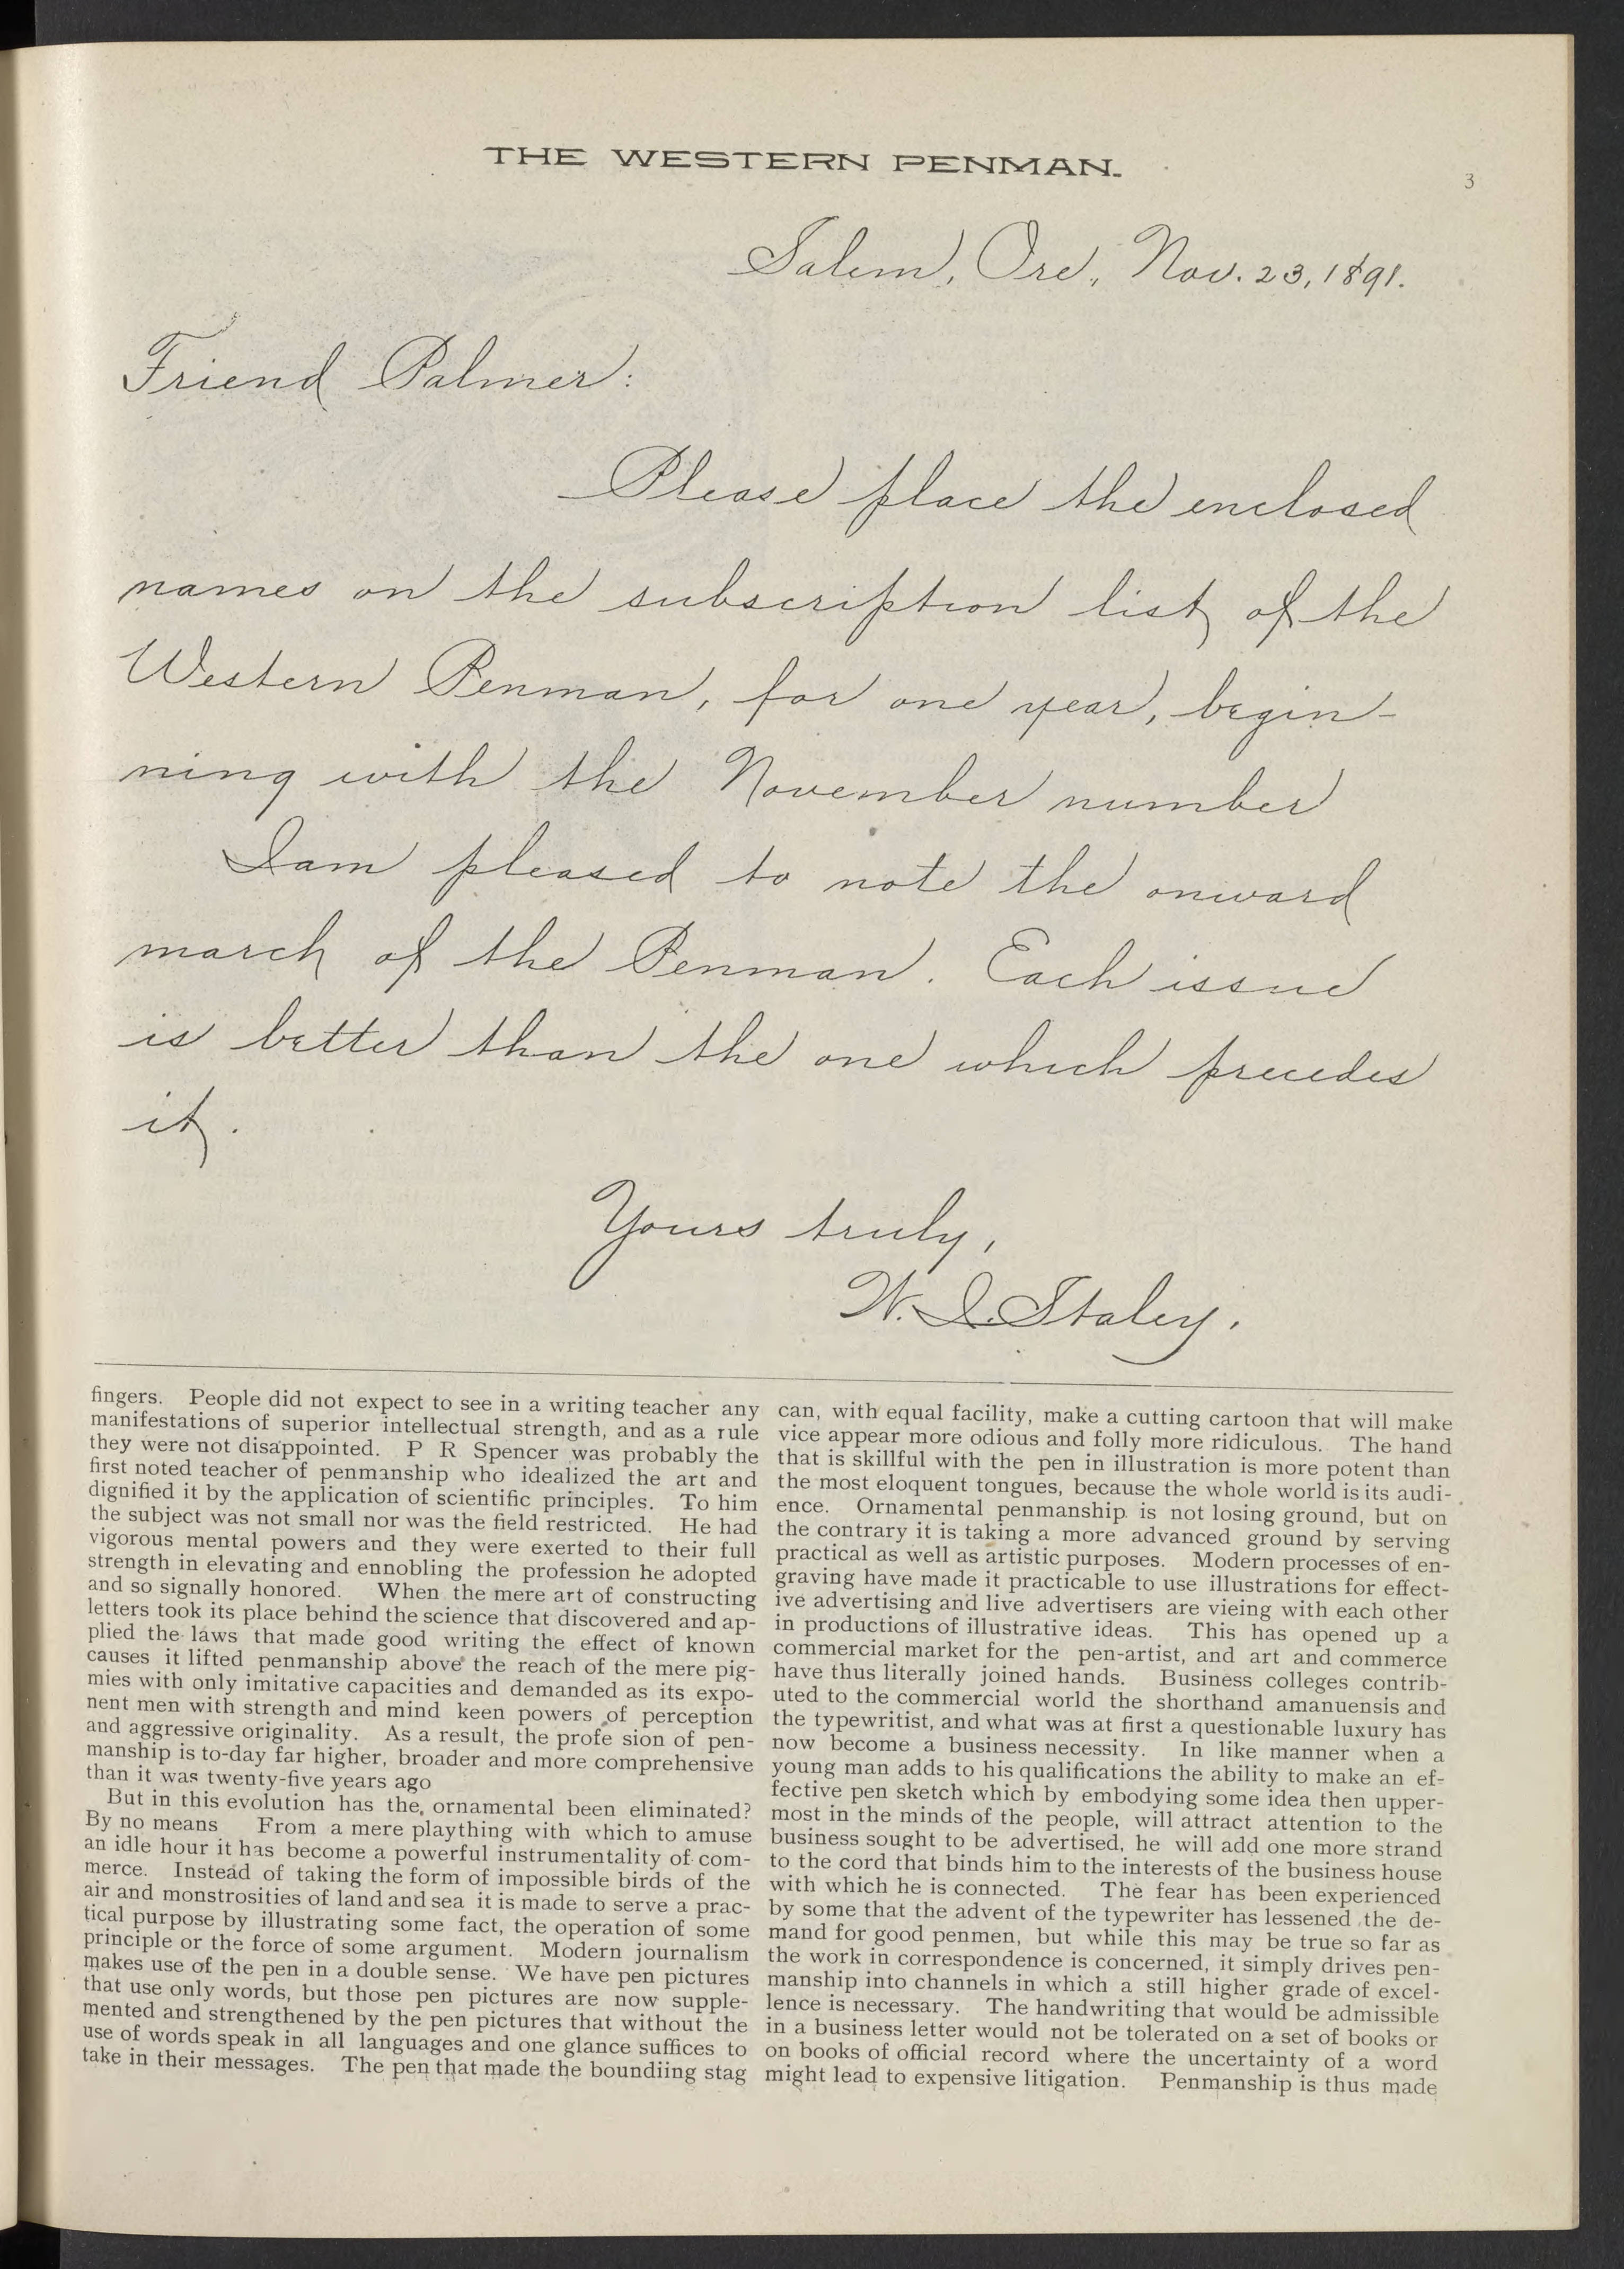 THE WESTERN PENMAN.
3
Salem, Ore., Nov. 23, 1891.
Friend Palmer:
Please place the enclosed
names on the subscription list of the
Western Penman, for one year, begin-
ning with the November number
I am pleased to note the onward
march of the Penman. Each issue
is better than the one which precedes
it.
Yours truly,
W. I. Staley.
fingers. People did not expect to see in a writing teacher any
manifestations of superior intellectual strength, and as a rule
they were not disappointed. P R Spencer was probably the
first noted teacher of penmanship who idealized the art and
dignified it by the application of scientific principles. To him
the subject was not small nor was the field restricted. He had
vigorous mental powers and they were exerted to their full
strength in elevating and ennobling the profession he adopted
and so signally honored. When the mere art of constructing
letters took its place behind the science that discovered and ap-
plied the laws that made good writing the effect of known
causes it lifted penmanship above the reach of the mere pig-
mies with only imitative capacities and demanded as its expo-
nent men with strength and mind keen powers of perception
and aggressive originality. As a result, the profe sion of pen-
manship is to-day far higher, broader and more comprehensive
than it was twenty-five years ago
But in this evolution has the ornamental been eliminated?
By no means From a mere plaything with which to amuse
an idle hour it has become a powerful instrumentality of com-
merce. Instead of taking the form of impossible birds of the
air and monstrosities of land and sea it is made to serve a prac-
tical purpose by illustrating some fact, the operation of some
principle or the force of some argument. Modern journalism
makes use of the pen in a double sense. We have pen pictures
that use only words, but those pen pictures are now supple-
mented and strengthened by the pen pictures that without the
use of words speak in all languages and one glance suffices to
take in their messages. The pen that made the boundiing stag
can, with equal facility, make a cutting cartoon that will make
vice appear more odious and folly more ridiculous. The hand
that is skillful with the pen in illustration is more potent than
the most eloquent tongues, because the whole world is its audi-
ence. Ornamental penmanship is not losing ground, but on
the contrary it is taking a more advanced ground by serving
practical as well as artistic purposes. Modern processes of en-
graving have made it practicable to use illustrations for effect-
ive advertising and live advertisers are vieing with each other
in productions of illustrative ideas. This has opened up a
commercial market for the pen-artist, and art and commerce
have thus literally joined hands. Business colleges contrib-
uted to the commercial world the shorthand amanuensis and
the typewritist, and what was at first a questionable luxury has
now become a business necessity. In like manner when a
young man adds to his qualifications the ability to make an ef-
fective pen sketch which by embodying some idea then upper-
most in the minds of the people, will attract attention to the
business sought to be advertised, he will add one more strand
to the cord that binds him to the interests of the business house
with which he is connected. The fear has been experienced
by some that the advent of the typewriter has lessened the de-
mand for good penmen, but while this may be true so far as
the work in correspondence is concerned, it simply drives pen-
manship into channels in which a still higher grade of excel-
lence is necessary. The handwriting that would be admissible
in a business letter would not be tolerated on a set of books or
on books of official record where the uncertainty of a word
might lead to expensive litigation. Penmanship is thus made